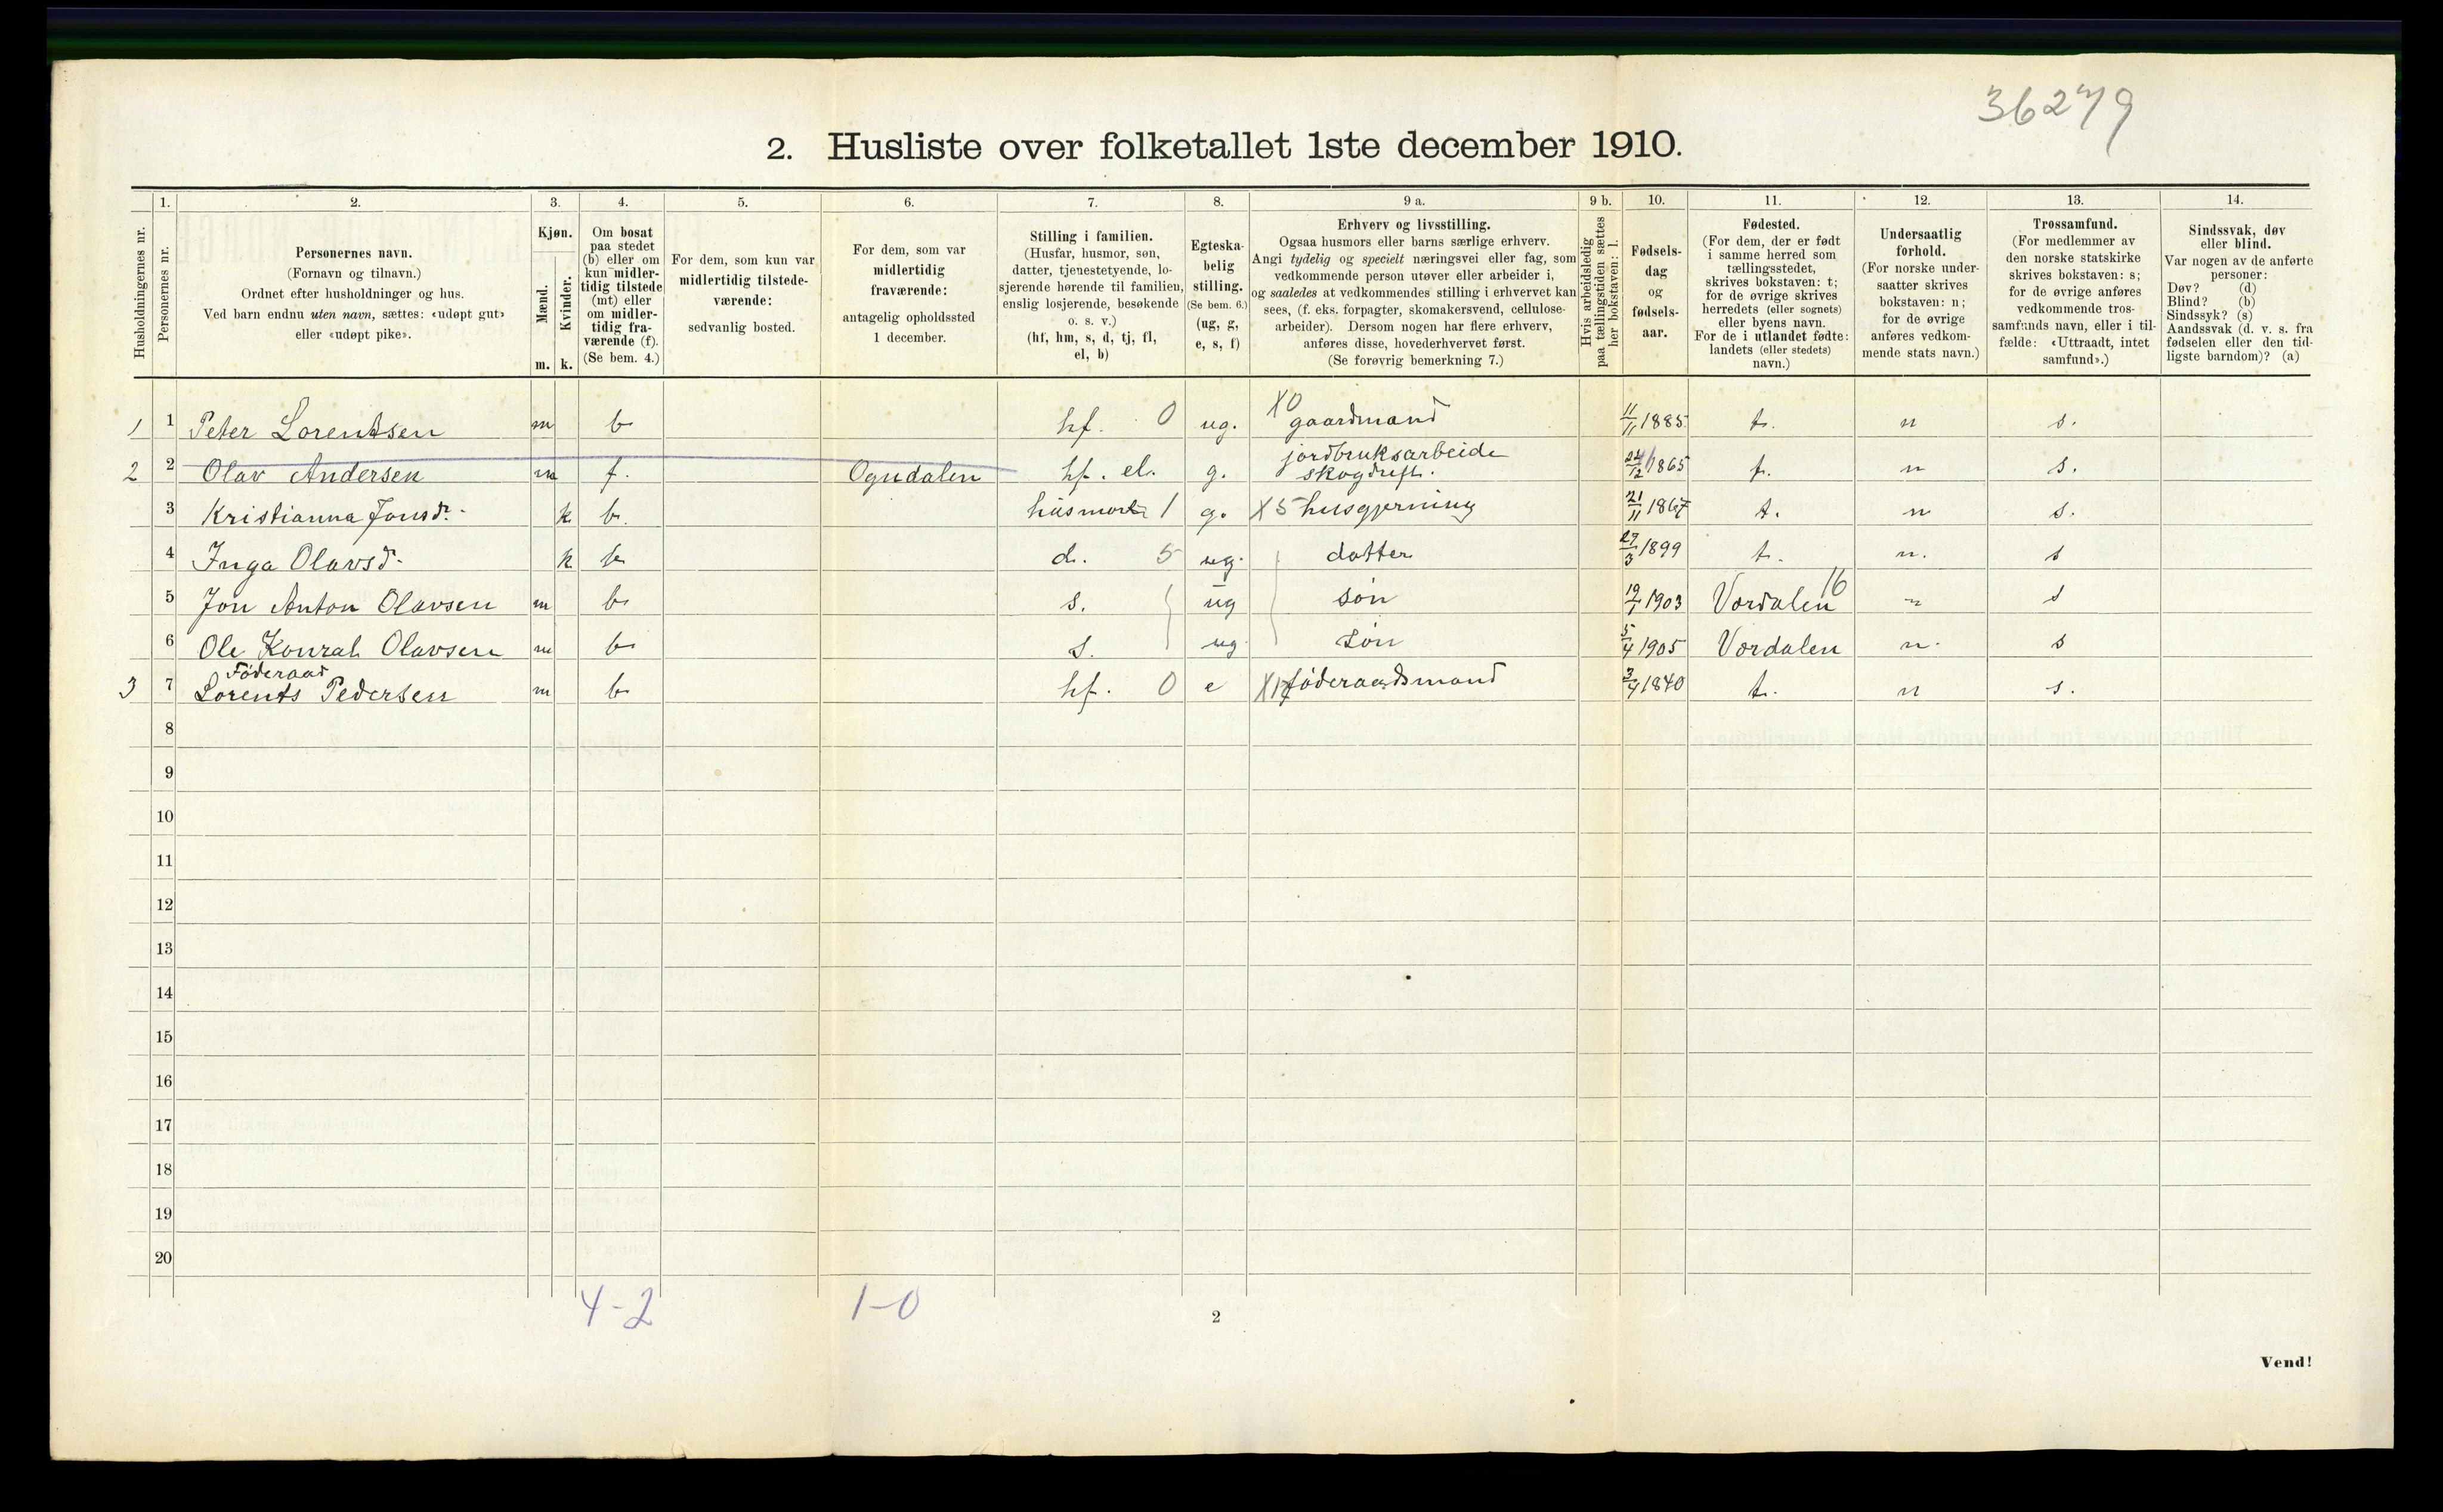 36279
2. Husliste over folketallet 1ste december 1910.
Husholdningernes nr.
1.
Personernes nr.
2.
Personernes navn.
(Fornavn og tilnavn.)
Ordnet efter husholdninger og hus.
Ved barn endnu uten navn, sættes: «udøpt gut»
eller «udøpt pike».
3.
Kjøn.
Mænd.
Kvinder.
m. k.
4.
Om bosat
paa stedet
(b) eller om
kun midler-
tidig tilstede
(mt) eller
om midler-
tidig fra-
værende (f).
(Se bem. 4.)
5.
For dem, som kun var
midlertidig tilstede-
værende:
sedvanlig bosted.
6.
For dem, som var
midlertidig
fraværende:
antagelig opholdssted
1 december.
7.
Stilling i familien.
(Husfar, husmor, søn,
datter, tjenestetyende, lo-
sjerende hørende til familien,
enslig losjerende, besøkende
o. s. v.)
(hf, hm, s, d, tj, fl,
el, b)
8.
Egteska-
belig
stilling.
(Se bem. 6.)
(ug, g,
e, s, f)
9 a.
Erhverv og livsstilling.
Ogsaa husmors eller barns særlige erhverv.
Angi tydelig og specielt næringsvei eller fag, som
vedkommende person utøver eller arbeider i,
og saaledes at vedkommendes stilling i erhvervet kan
sees, (f. eks. forpagter, skomakersvend, cellulose-
arbeider). Dersom nogen har flere erhverv,
anføres disse, hovederhvervet først.
(Se forøvrig bemerkning 7.)
9 b.
Hvis arbeidsledig
paa tællingstiden sættes
her bokstaven: l.
10.
Fødsels-
dag
og
fødsels-
aar.
11.
Fødested.
(For dem, der er født
i samme herred som
tællingsstedet,
skrives bokstaven: t;
for de øvrige skrives
herredets (eller sognets)
eller byens navn.
For de i utlandet fødte:
landets (eller stedets)
navn.)
12.
Undersaatlig
forhold.
(For norske under-
saatter skrives
bokstaven: n;
for de øvrige
anføres vedkom-
mende stats navn.)
13.
Trossamfund.
(For medlemmer av
den norske statskirke
skrives bokstaven: s;
for de øvrige anføres
vedkommende tros-
samfunds navn, eller i til-
fælde: «Uttraadt, intet
samfund».)
14.
Sindssvak, døv
eller blind.
Var nogen av de anførte
personer:
Døv? (d)
Blind? (b)
Sindssyk? (s)
Aandssvak (d. v. s. fra
fødselen eller den tid-
ligste barndom)? (a)
1 1 Peter Lorentsen m b hf. 0 ug. X0 gaardmand 11/11 1885 t. n s.
2 2 Olav Andersen m f. Ogndalen hf. el. g. jordbruksarbeide skogdrift. 24/12 1865 t. n s.
3 Kristianna Jonsd. k b. husmor 1 g. X5 husgjerning 21/11 1867 t. n s.
4 Inga Olavsd. k b d. 5 ug. datter 29/3 1899 t. n. s
5 Jon Anton Olavsen m b s. ug søn 19/1 1903 Værdalen 16 n s
6 Ole Konrah Olavsen m b s. ug søn 5/4 1905 Værdalen n. s
Föderaad
3 7 Lorents Pedersen m b hf. 0 e föderaadsmand 3/4 1840 t. n s.
8
9
10
11
12
13
14
15
16
17
18
19
20
4-2 1-0
2
Vend!